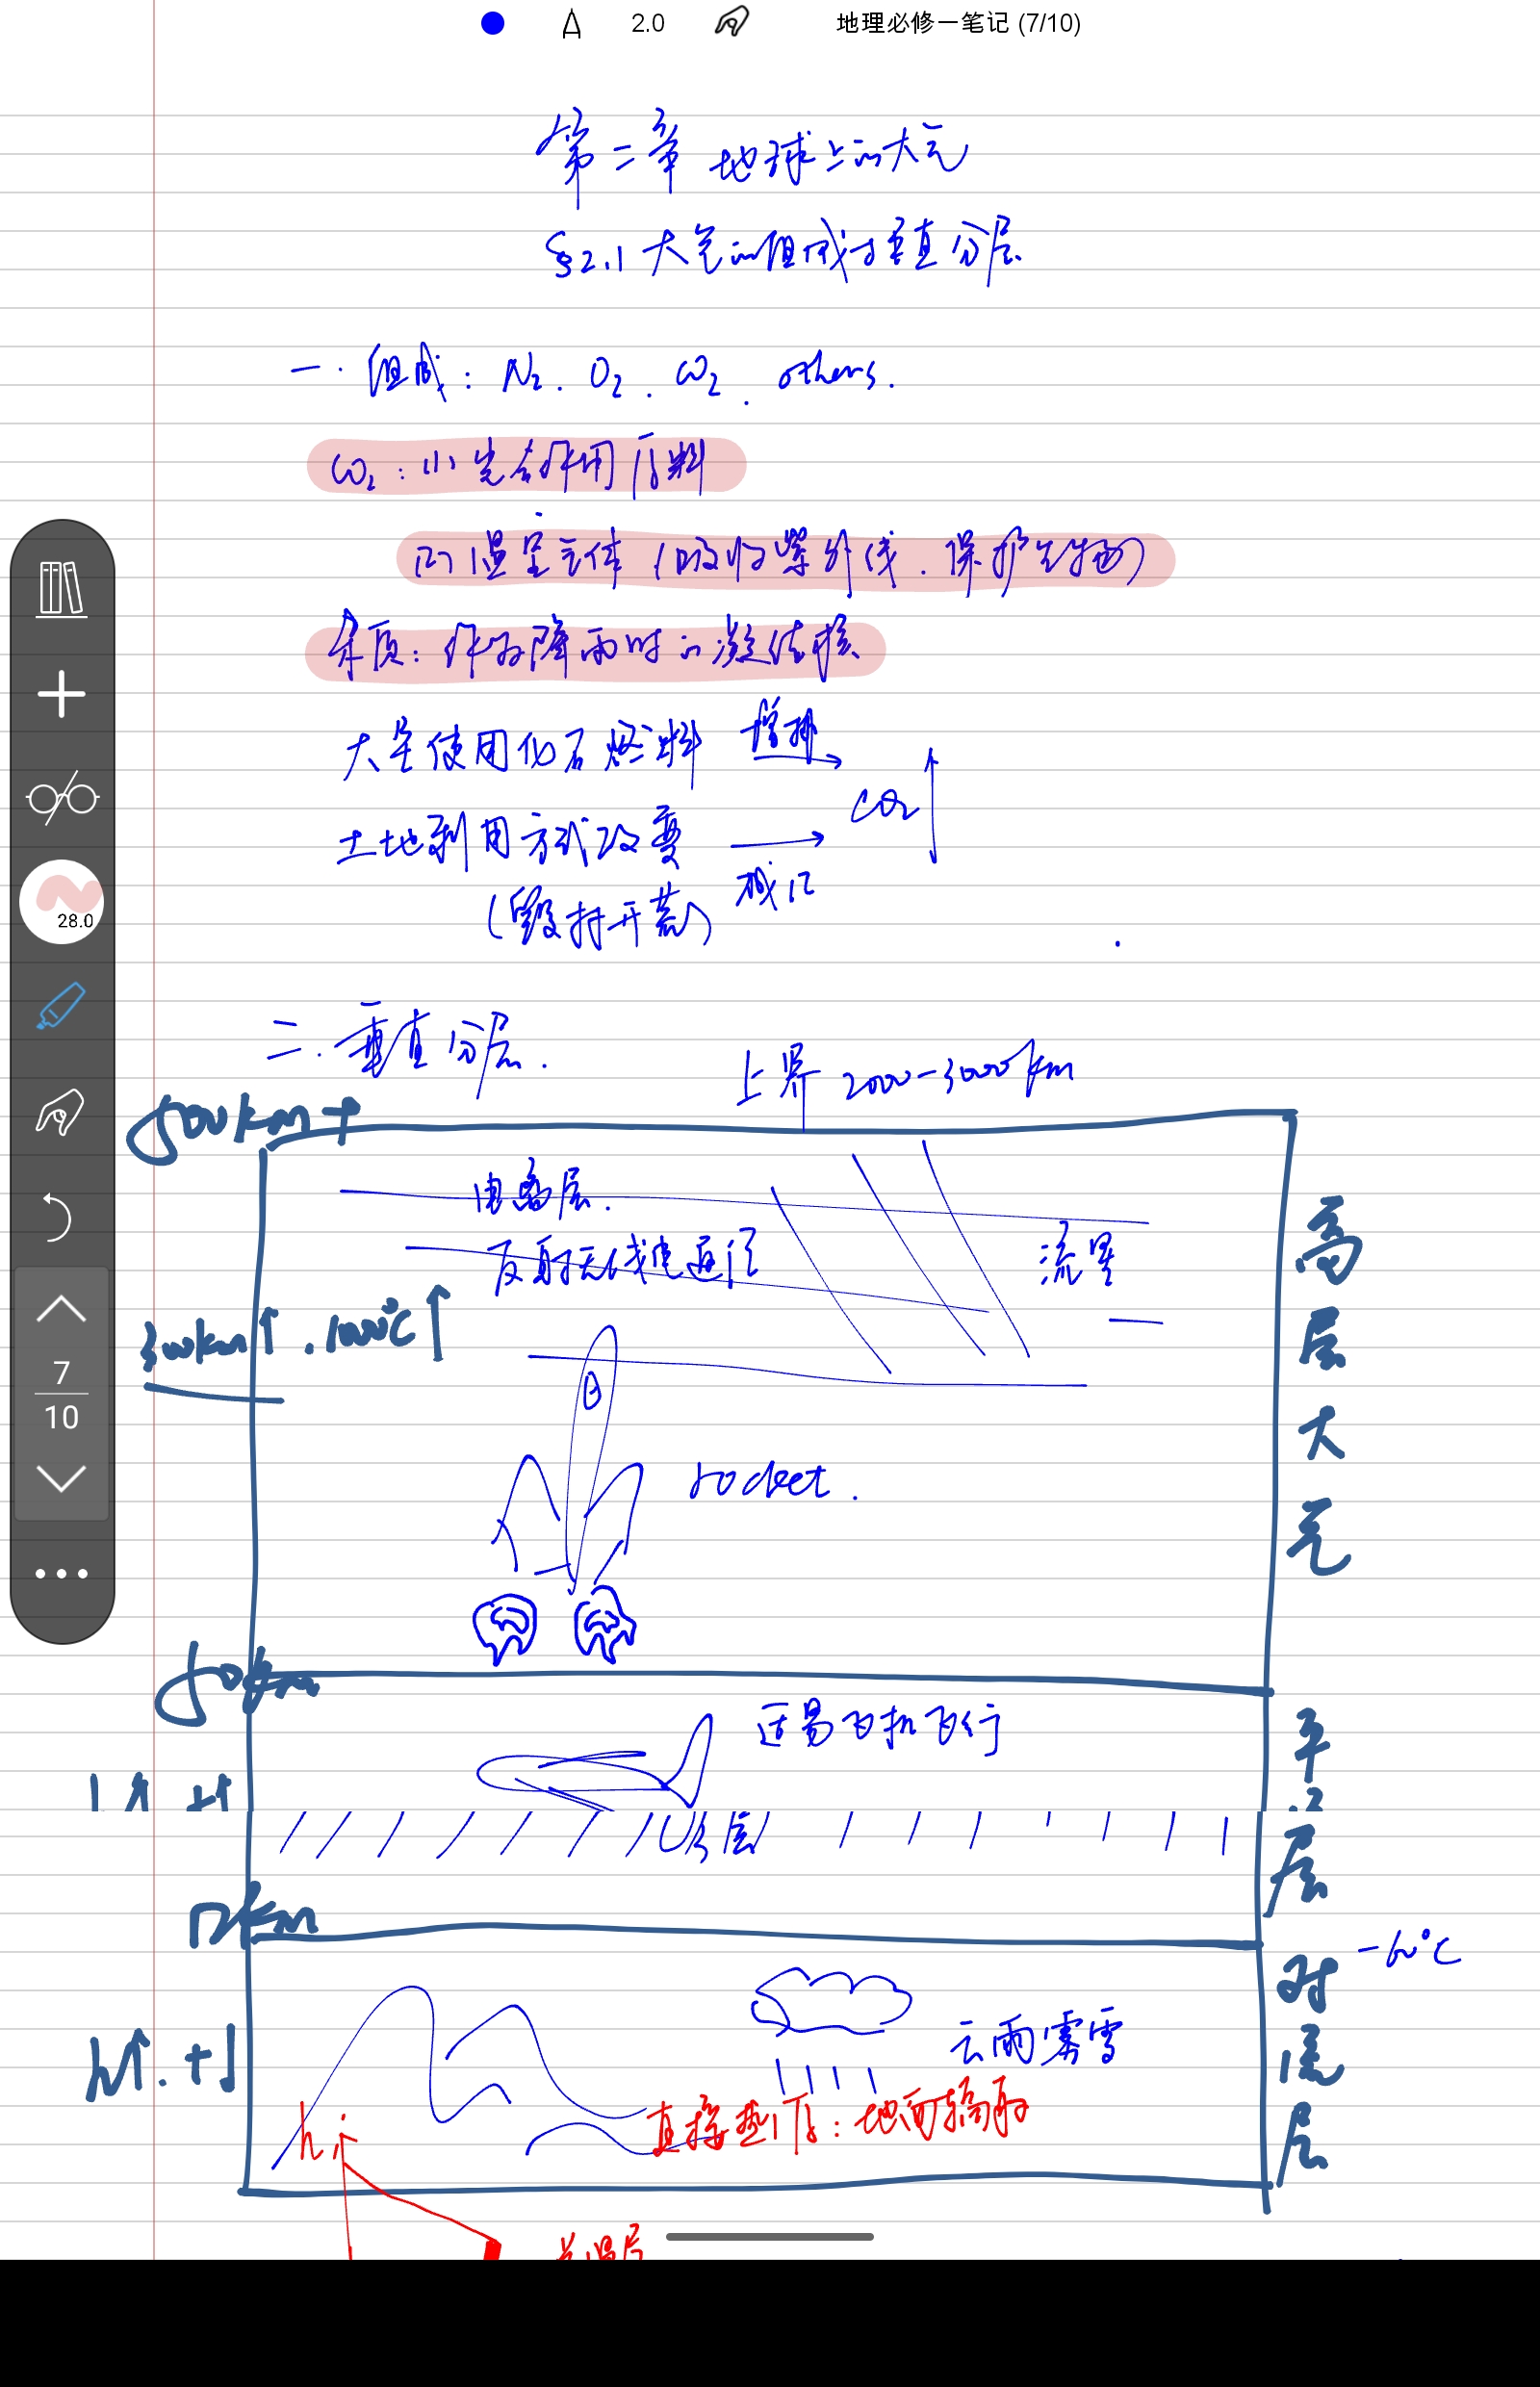 2.0 地理必修一笔记 (7/10)
第二章 地球上的大气
§2.1 大气的组成与垂直分层
一. 组成: N₂. O₂. CO₂. others.
CO₂: (1) 光合作用原料
(2) 温室气体 (吸收紫外线. 保护生物)
杂质: 作为降雨时的凝结核
大量使用化石燃料 增排 →
CO₂ ↑
土地利用方式改变 →
(毁林开荒)
28.0
二. 垂直分层.
上界 2000-3000km
500km+
电离层.
反射无线电通信
流星
300km↑. 1000℃↑
高层大气
7
10
rocket.
50km
适易飞机飞行
平流层
h↑ t↑
O₃层
12km
-60℃
对流层
云雨雾雪
h↑. t↓
直接热源: 地面辐射
h↑